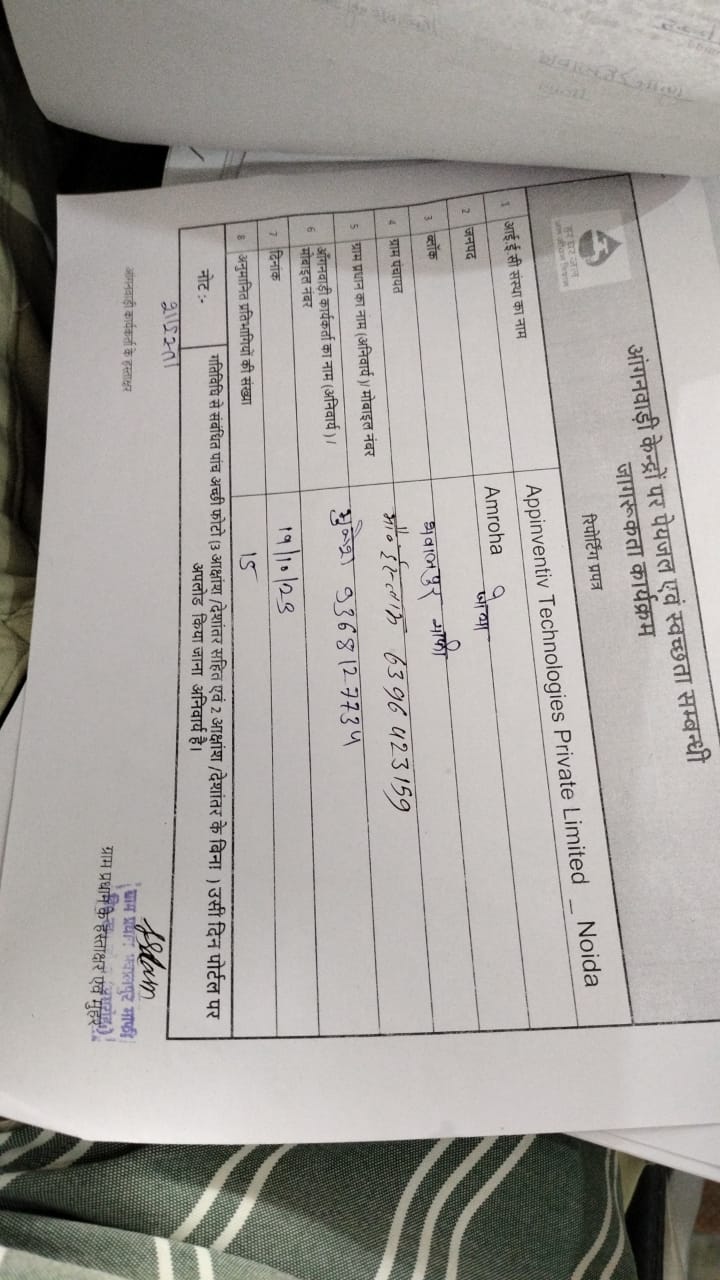 हर घर जल
जल जीवन मिशन
आंगनवाड़ी केन्द्रों पर पेयजल एवं स्वच्छता सम्बन्धी
जागरूकता कार्यक्रम
रिपोर्टिंग प्रपत्र
1 आई ई सी संस्था का नाम Appinventiv Technologies Private Limited _ Noida
2 जनपद Amroha
3 ब्लॉक जोया
4 ग्राम पंचायत
5 ग्राम प्रधान का नाम (अनिवार्य )/ मोबाइल नंबर 6396423159
6 आँगनवाड़ी कार्यकर्ता का नाम (अनिवार्य ) /
मोबाइल नंबर 9368127734
7 दिनांक 19/10/23
8 अनुमानित प्रतिभागियों की संख्या 15
नोट :- गतिविधि से संबंधित पांच अच्छी फोटो (3 आक्षांश /देशांतर सहित एवं 2 आक्षांश /देशांतर के बिना ) उसी दिन पोर्टल पर
अपलोड किया जाना अनिवार्य है।
आंगनवाड़ी कार्यकर्ता के हस्ताक्षर
ग्राम प्रधान के हस्ताक्षर एवं मुहर